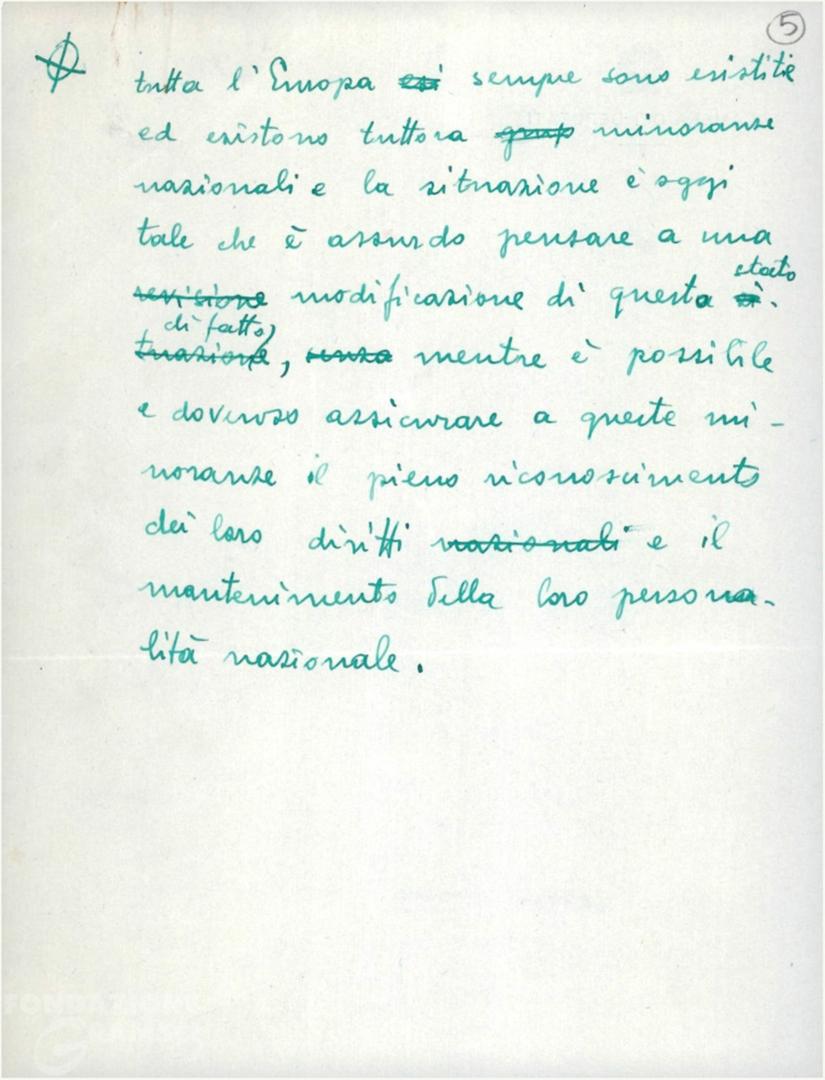 5
tutta l'Europa esi sempre sono esistitie
ed esistono tuttora grup minoranze
nazionali e la situazione è oggi
tale che è assurdo pensare a una
stato
revisione modificazione di questa si-
di fatto,
tuazione, senza mentre è possibile
e doveroso assicurare a queste mi-
noranze il pieno riconoscimento
dei loro diritti nazionali e il
mantenimento della loro persona-
lità nazionale.
FONDAZIONE